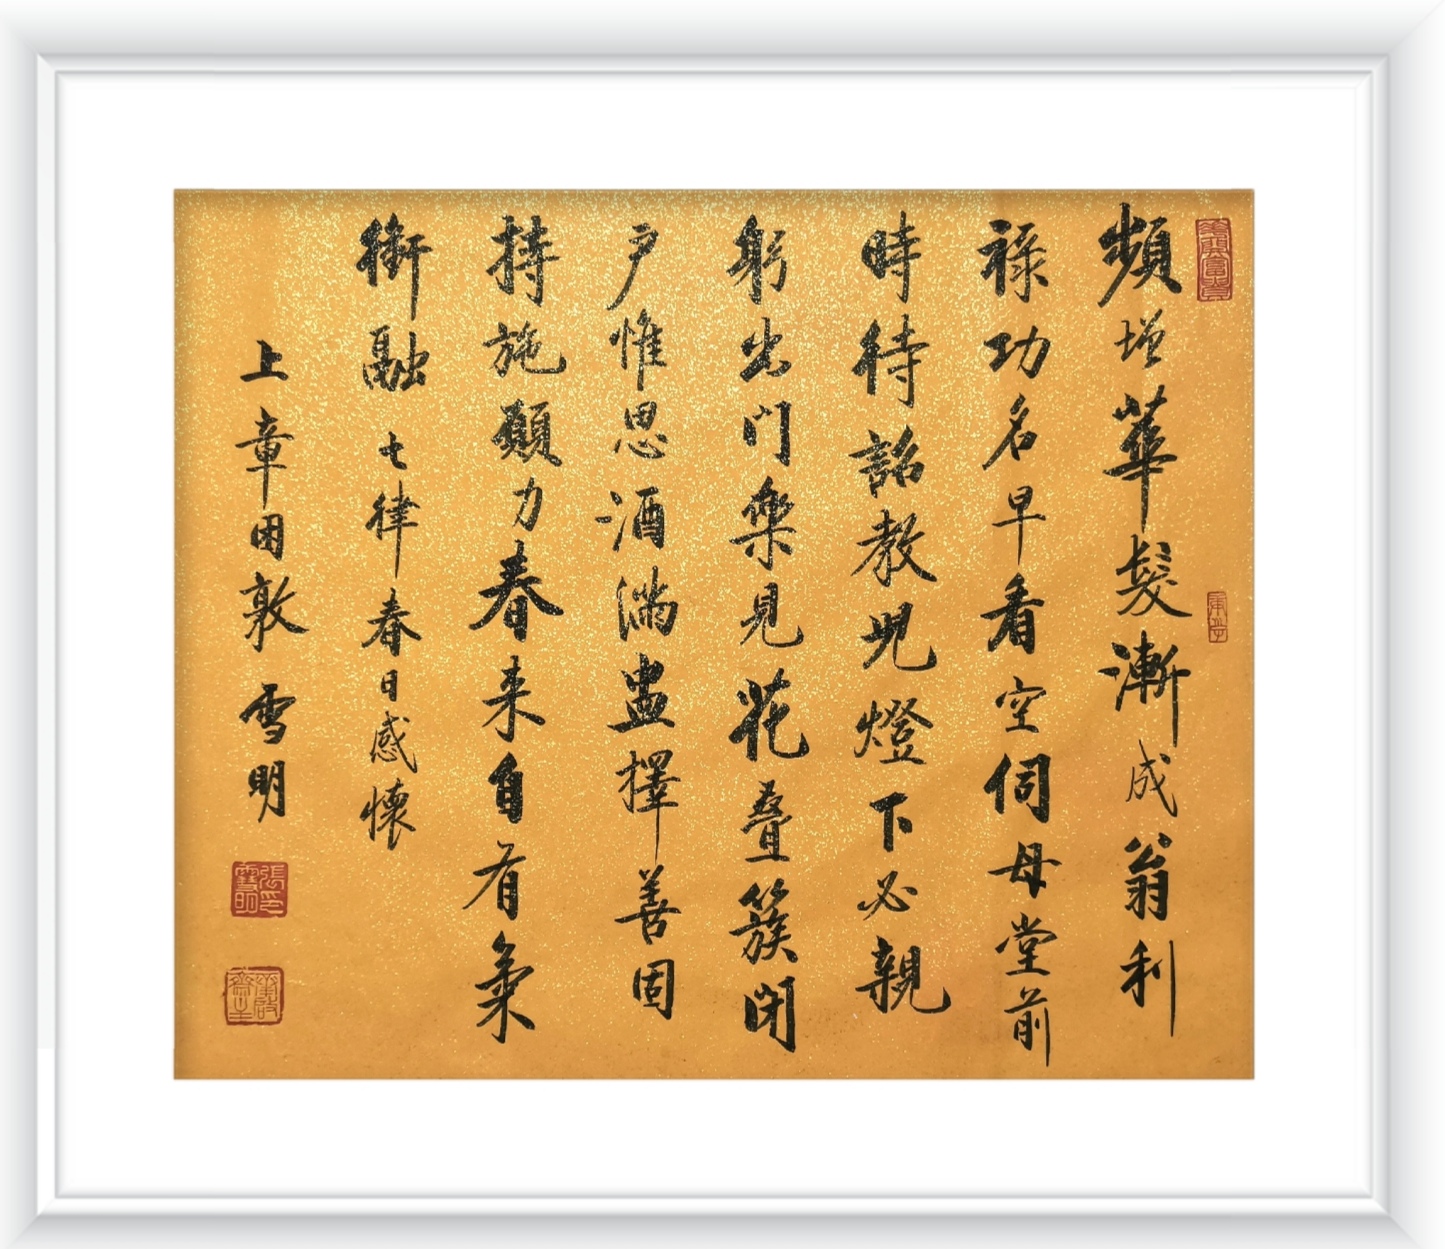 頻增華髮漸成翁利
祿功名早看空伺母堂前
時待詔教兒燈下必親
躬出門樂見花疊簇閉
戶惟思酒滿盅擇善固
持施願力春来自有氣
衝融 七律春日感懷
上章困敦 雪明
張印雪明